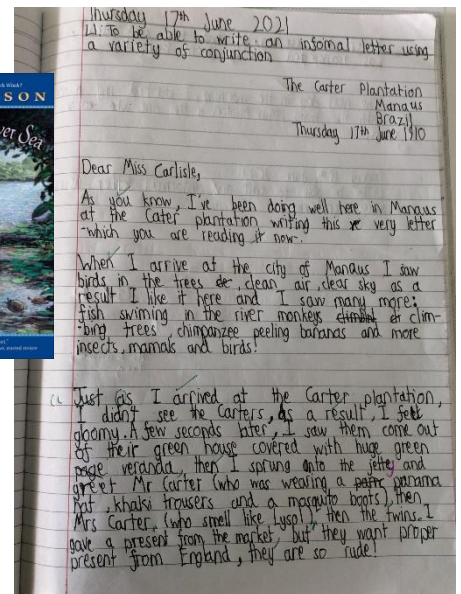 Thursday 17th June 2021
LI: To be able to write an infomal letter using
a variety of conjunction
The Carter Plantation
Manaus
Brazil
Thursday 17th June 1910
Dear Miss Carlisle,
As you know, I've been doing well here in Manaus
at the Cater plantation writing this very letter
-which you are reading it now-.
When I arrive at the city of Manaus I saw
birds in the trees, clean air, clear sky as a
result I like it here and I saw many more:
fish swiming in the river monkeys clim-
-bing trees, chimpanzee peeling bananas and more
insects, mamals and birds!
Just as I arrived at the Carter plantation,
I didn't see the Carters, as a result, I felt
gloomy. A few seconds later, I saw them come out
of their green house covered with huge green
veranda, then I sprung onto the jetty and
greet Mr Carter (who was wearing a panama
hat, khaki trousers and a mosquito boots), then
Mrs Carter, (who smell like Lysol), then the twins. I
gave a present from the market, but they want proper
present from England, they are so rude!
SON
ver Sea